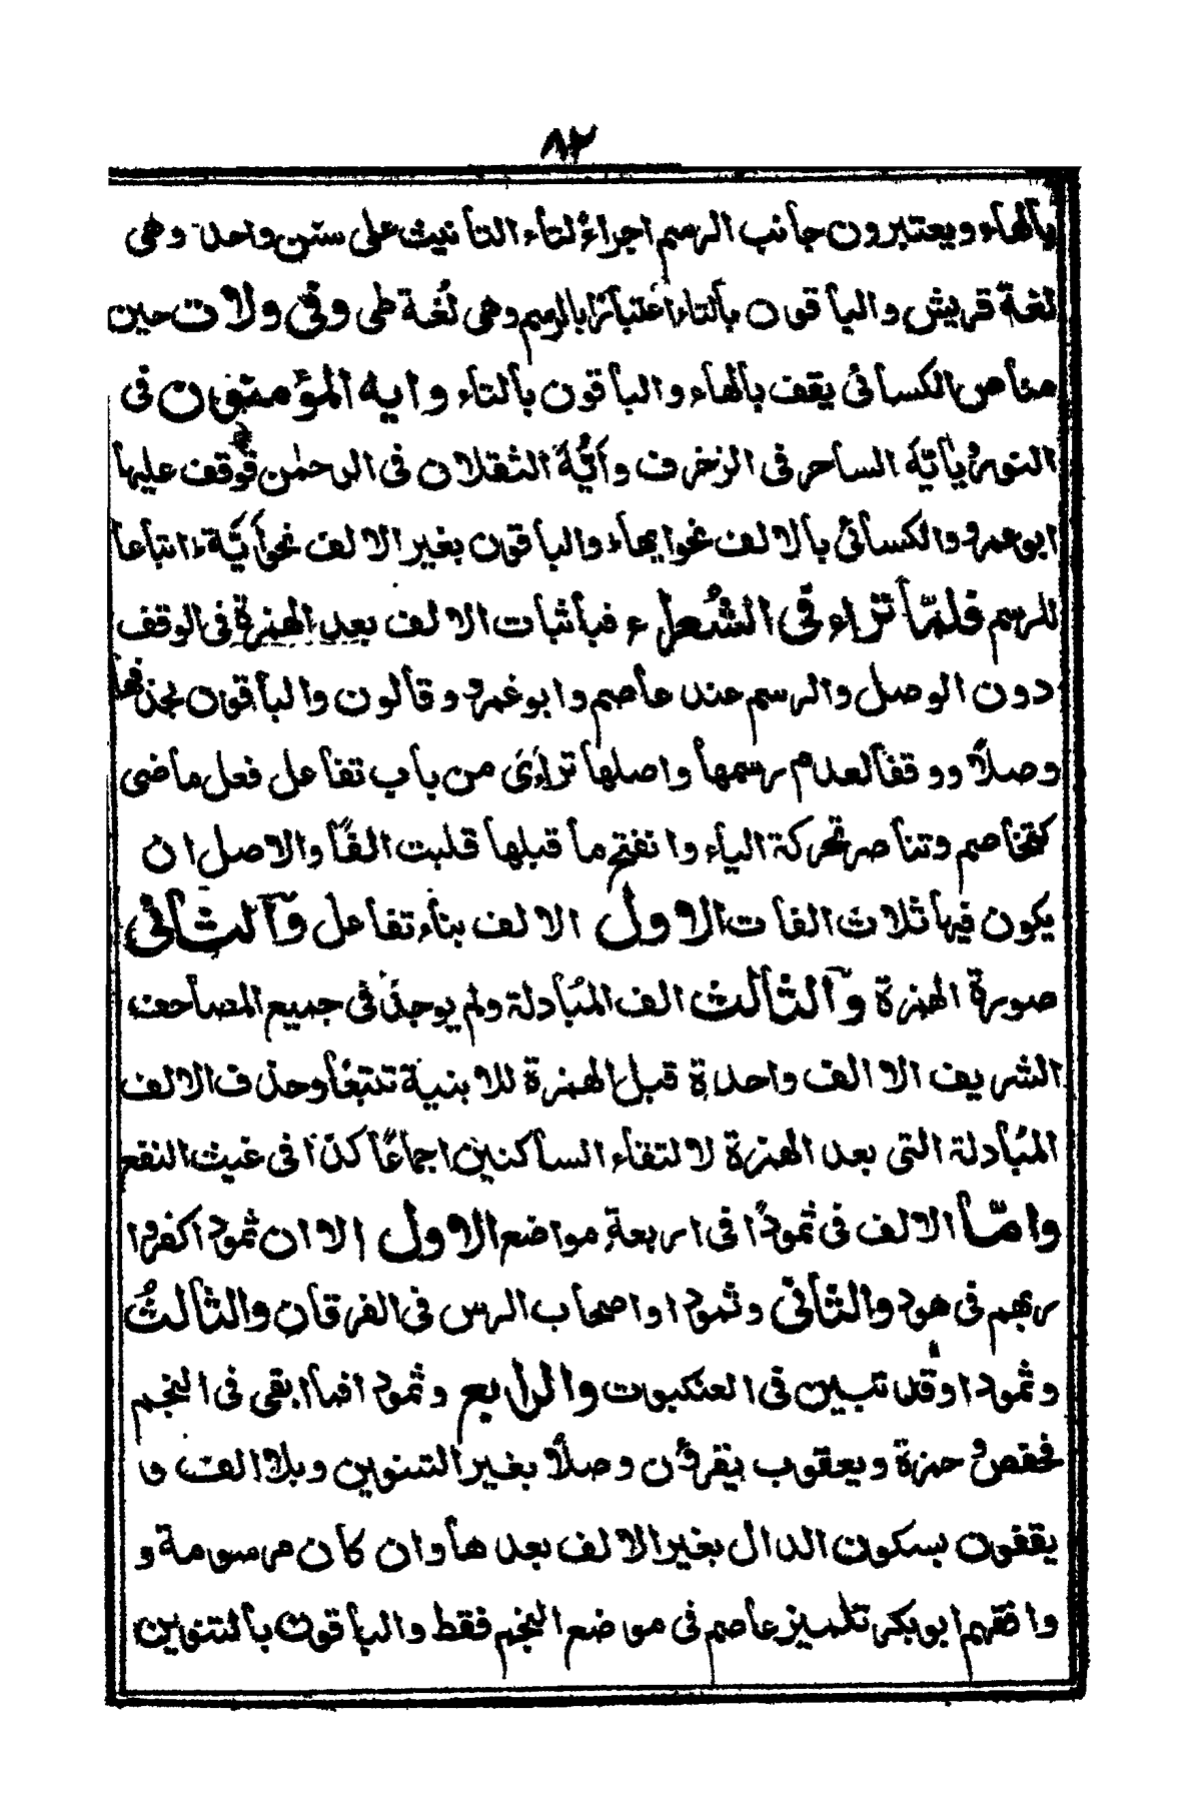 ٨٢
بألهاء ويعتبرون جانب الرسم اجراءً لتاء التأنيث على سنن واحد وهى
لغة قريش والباقون بالتاء اعتبارًا بالرسم وهى لُغة طى وفى ولات حين
مناص الكسائى يقف بالهاء والباقون بالتاء وايه المؤمنون فى
النور ويأيّه الساحر فى الزخرف وأيُّهَ الثقلان فى الرحمٰن فوقف عليها
ابو عمرو والكسائى بالالف نحو ايها والباقون بغير الالف نحو أيّه اتباعا
للرسم فلمّا تراء فى الشُعراء فبأثبات الالف بعد الهمزة فى الوقف
دون الوصل والرسم عند عاصم وابو عمرو وقالون والباقون بحذفها
وصلاً ووقفا لعدم رسمها واصلها تراءَىَ من باب تفاعل فعل ماضى
كتخاصم وتناصر تحركة الياء وانفتح ما قبلها قلبت الفًا والاصل ان
يكون فيها ثلاث الفات الاول الالف بناء تفاعل والثانى
صورة الهمزة والثالث الف المُبادلة ولم يوجد فى جميع المصاحف
الشريف الا الف واحدة قبل الهمزة للابنية تتبعًا وحذف الالف
المُبادلة التى بعد الهمزة لالتقاء الساكنين اجماعًا كذا فى غيث النفع
وامّا الالف فى ثمودًا فى اربعة مواضع الاول الا ان ثمودا كفروا
ربهم فى هود والثانى وثمودا واصحاب الرس فى الفرقان والثالثُ
وثمودا وقد تبين فى العنكبوت والرابع وثمودا فما ابقى فى النجم
فحفص وحمزة ويعقوب يقرؤن وصلاً بغير التنوين وبلا الف و
يقفون بسكون الدال بغير الالف بعدها وان كان مرسومة و
وافقهم ابو بكر تلميز عاصم فى موضع النجم فقط والباقون بالتنوين